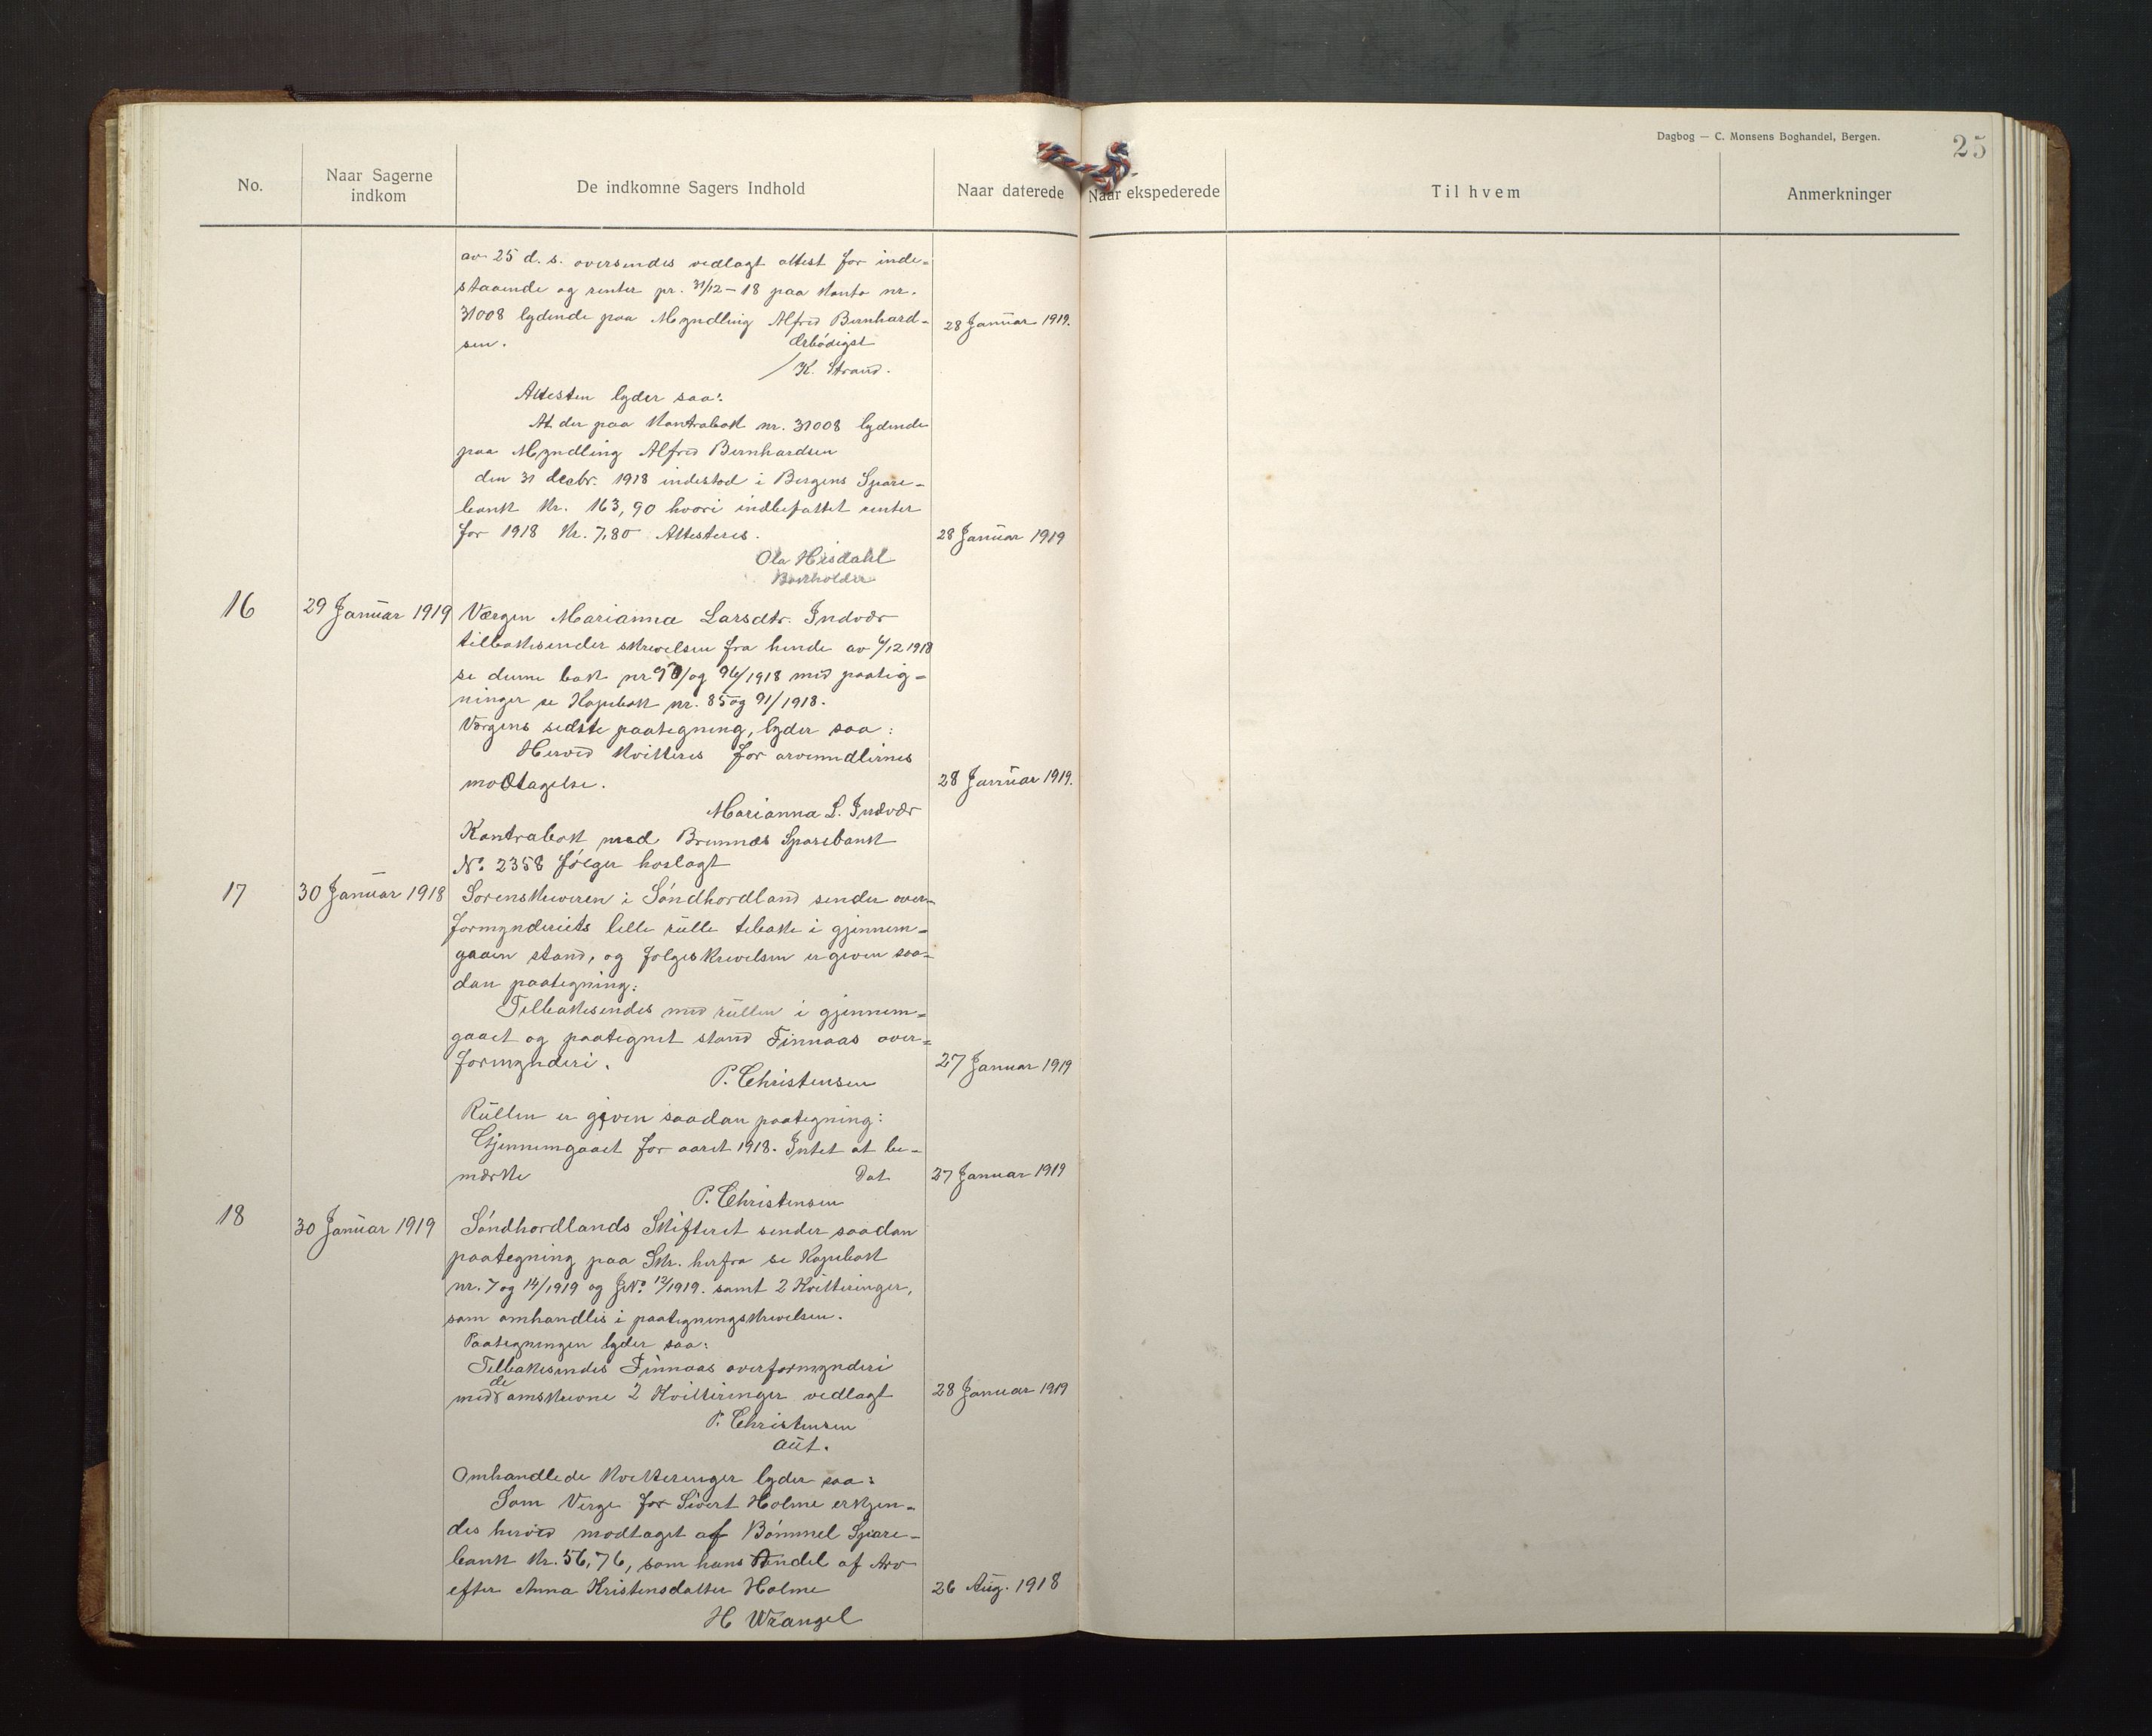 Dagbog — C. Monsens Boghandel, Bergen.
25
No.
Naar Sagerne indkom
De indkomne Sagers Indhold
Naar daterede
Naar ekspederede
Til hvem
Anmerkninger
av 25 d. s. oversendes vedlagt attest for inde-
staaende og renter pr. 31/12 - 18 paa Konto nr.
31008 lydende paa Myndling Alfred Bernhard- 28 Januar 1919.
sen. Ærbødigst
/K. Strand.
Attesten lyder saa:
At der paa Kontrabok nr. 31008 lydende
paa Myndling Alfred Bernhardsen
den 31 decbr. 1918 indestod i Bergens Spare-
bank Kr. 163,90 hvori indbefattet renter
for 1918 Kr. 7,80 Attesteres. 28 Januar 1919
Ola Hisdahl
Bokholder
16 29 Januar 1919 Værgen Marianna Larsdtr. Indvær
tilbakesender skrivelsen fra hende av 6/12 1918
se denne bok nr 90/og 96/1918 med paateg-
ninger se Kopibok nr. 85 og 91/1918.
Værgens sidste paategning, lyder saa:
Herved kvitteres for arvemidlernes
modtagelse. 28 Januar 1919.
Marianna L. Indvær
Kontrabok med Bremnes Sparebank
No. 2358 følger hoslagt
17 30 Januar 1918 Sorenskriveren i Söndhordland sender over-
formynderiets lille rülle tilbake i gjennem-
gaaen stand, og følgeskrivelsen er given saa-
dan paategning:
Tilbakesendes med rüllen i gjennem-
gaaet og paategnet stand Finnaas over-
formynderi. 27 Januar 1919
P. Christensen
Rüllen er given saadan paategning:
Gjennemgaaet for aaret 1918. Intet at be-
mærke Dat 27 Januar 1919
P. Christensen
18 30 Januar 1919 Söndhordlands Skifteret sender saadan
paategning paa Skr. herfra se Kopibok
nr. 7 og 14/1919 og J.No. 12/1919. samt 2 Kvitteringer,
som omhandles i paategningskrivelsen.
Paategningen lyder saa:
Tilbakesendes Finnaas overformynderi
med de omskrevne 2 Kvitteringer vedlagt 28 Januar 1919
P. Christensen
aüt.
Omhandlede Kvitteringer lyder saa:
Som Verge for Sivert Holme erkjen-
des herved modtaget af Bömmel Spare-
bank Kr. 56,76, som hans Andel af Arv
efter Anna Kristensdatter Holme 26 Aüg. 1918
H Wrangel